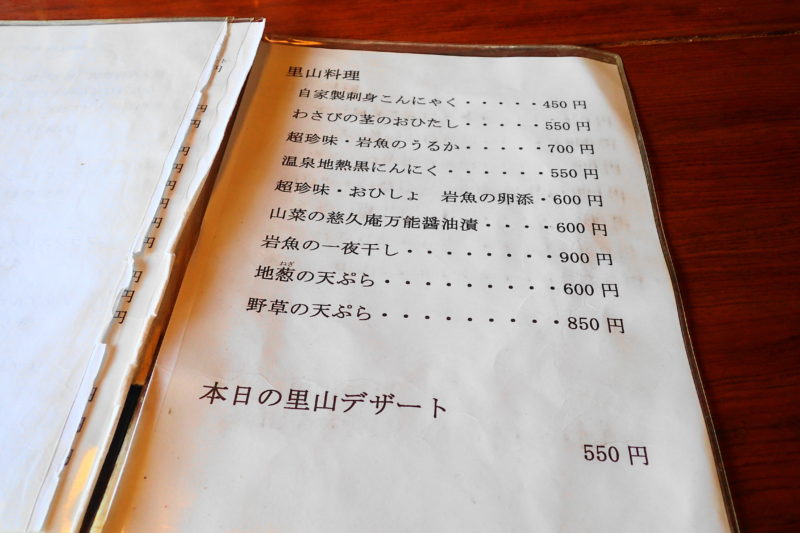 里山料理
自家製刺身こんにゃく・・・・・450円
わさびの茎のおひたし・・・・・550円
超珍味・岩魚のうるか・・・・・700円
温泉地熱黒にんにく・・・・・・550円
超珍味・おひしょ 岩魚の卵添・600円
山菜の慈久庵万能醤油漬・・・・600円
岩魚の一夜干し・・・・・・・・900円
ねぎ
地葱の天ぷら・・・・・・・・・600円
野草の天ぷら・・・・・・・・・850円
本日の里山デザート
550円
円
円
円
円
円
円
円
円
円
円
円
円
円